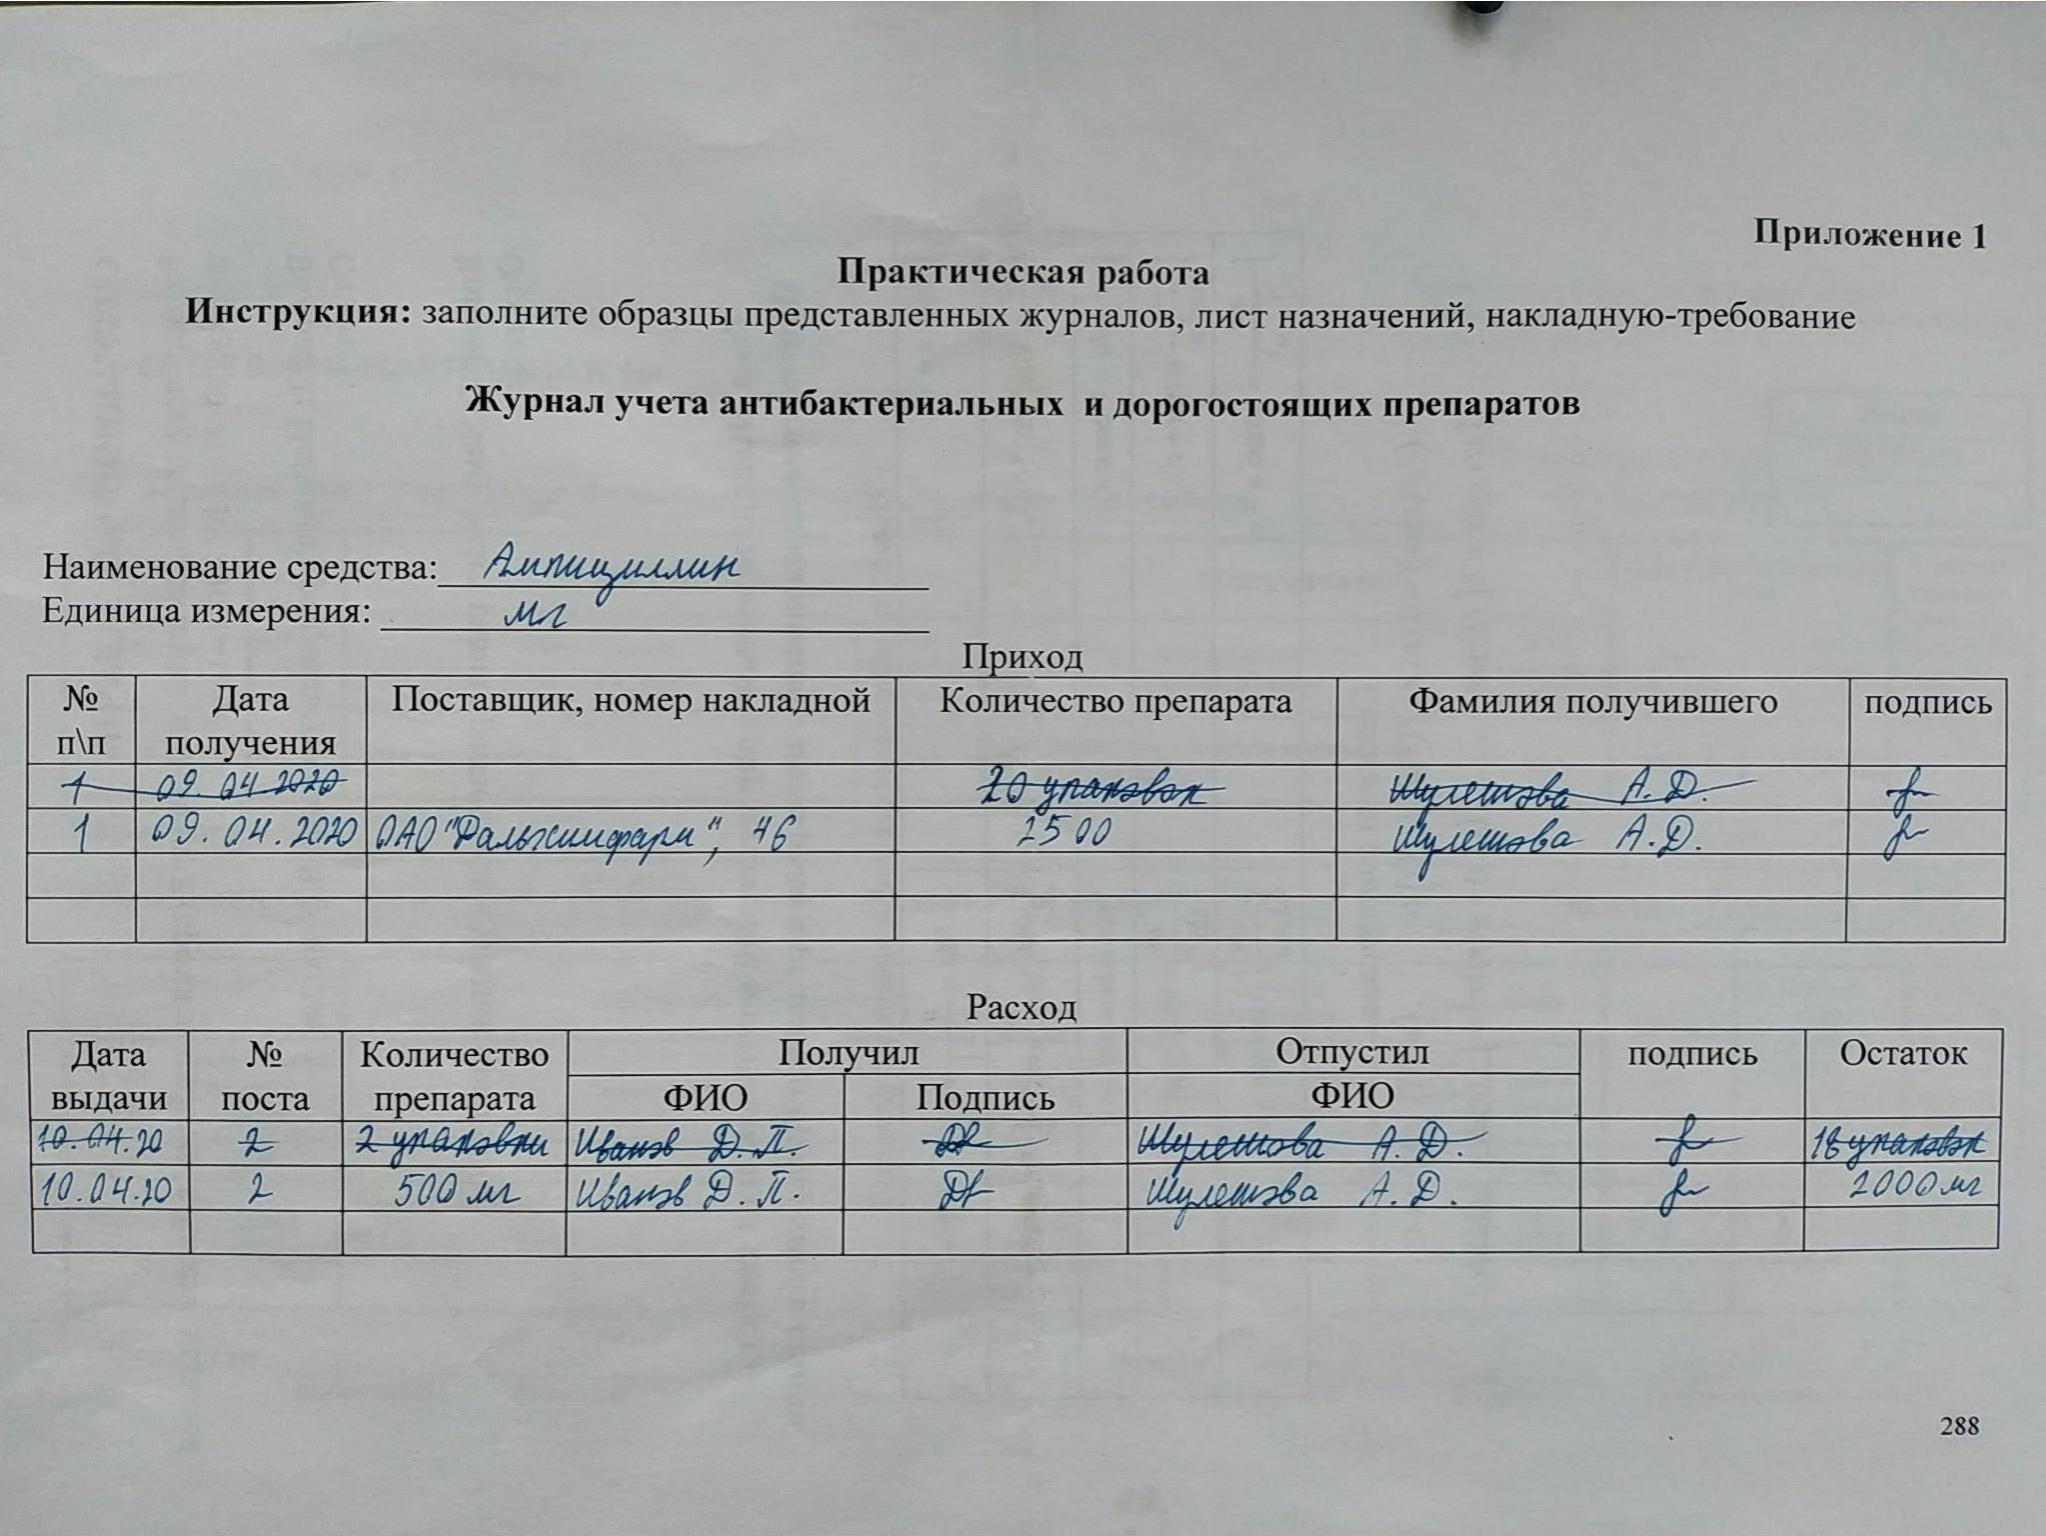 Приложение 1
Практическая работа
Инструкция: заполните образцы представленных журналов, лист назначений, накладную-требование
Журнал учета антибактериальных и дорогостоящих препаратов
Наименование средства: Ампициллин
Единица измерения: мг
Приход
№ п\п Дата получения Поставщик, номер накладной Количество препарата Фамилия получившего подпись
1 09.04 2020 20 упаковок Шулешова А.Д.
1 09.04.2020 ОАО "Дальхимфарм", 46 2500 Шулешова А.Д.
Расход
Дата выдачи № поста Количество препарата Получил Отпустил подпись Остаток
ФИО Подпись ФИО
10.04.20 2 2 упаковки Иванов Д.П. Шулешова А.Д. 18 упаковок
10.04.20 2 500 мг Иванов Д.П. Шулешова А.Д. 2000 мг
288